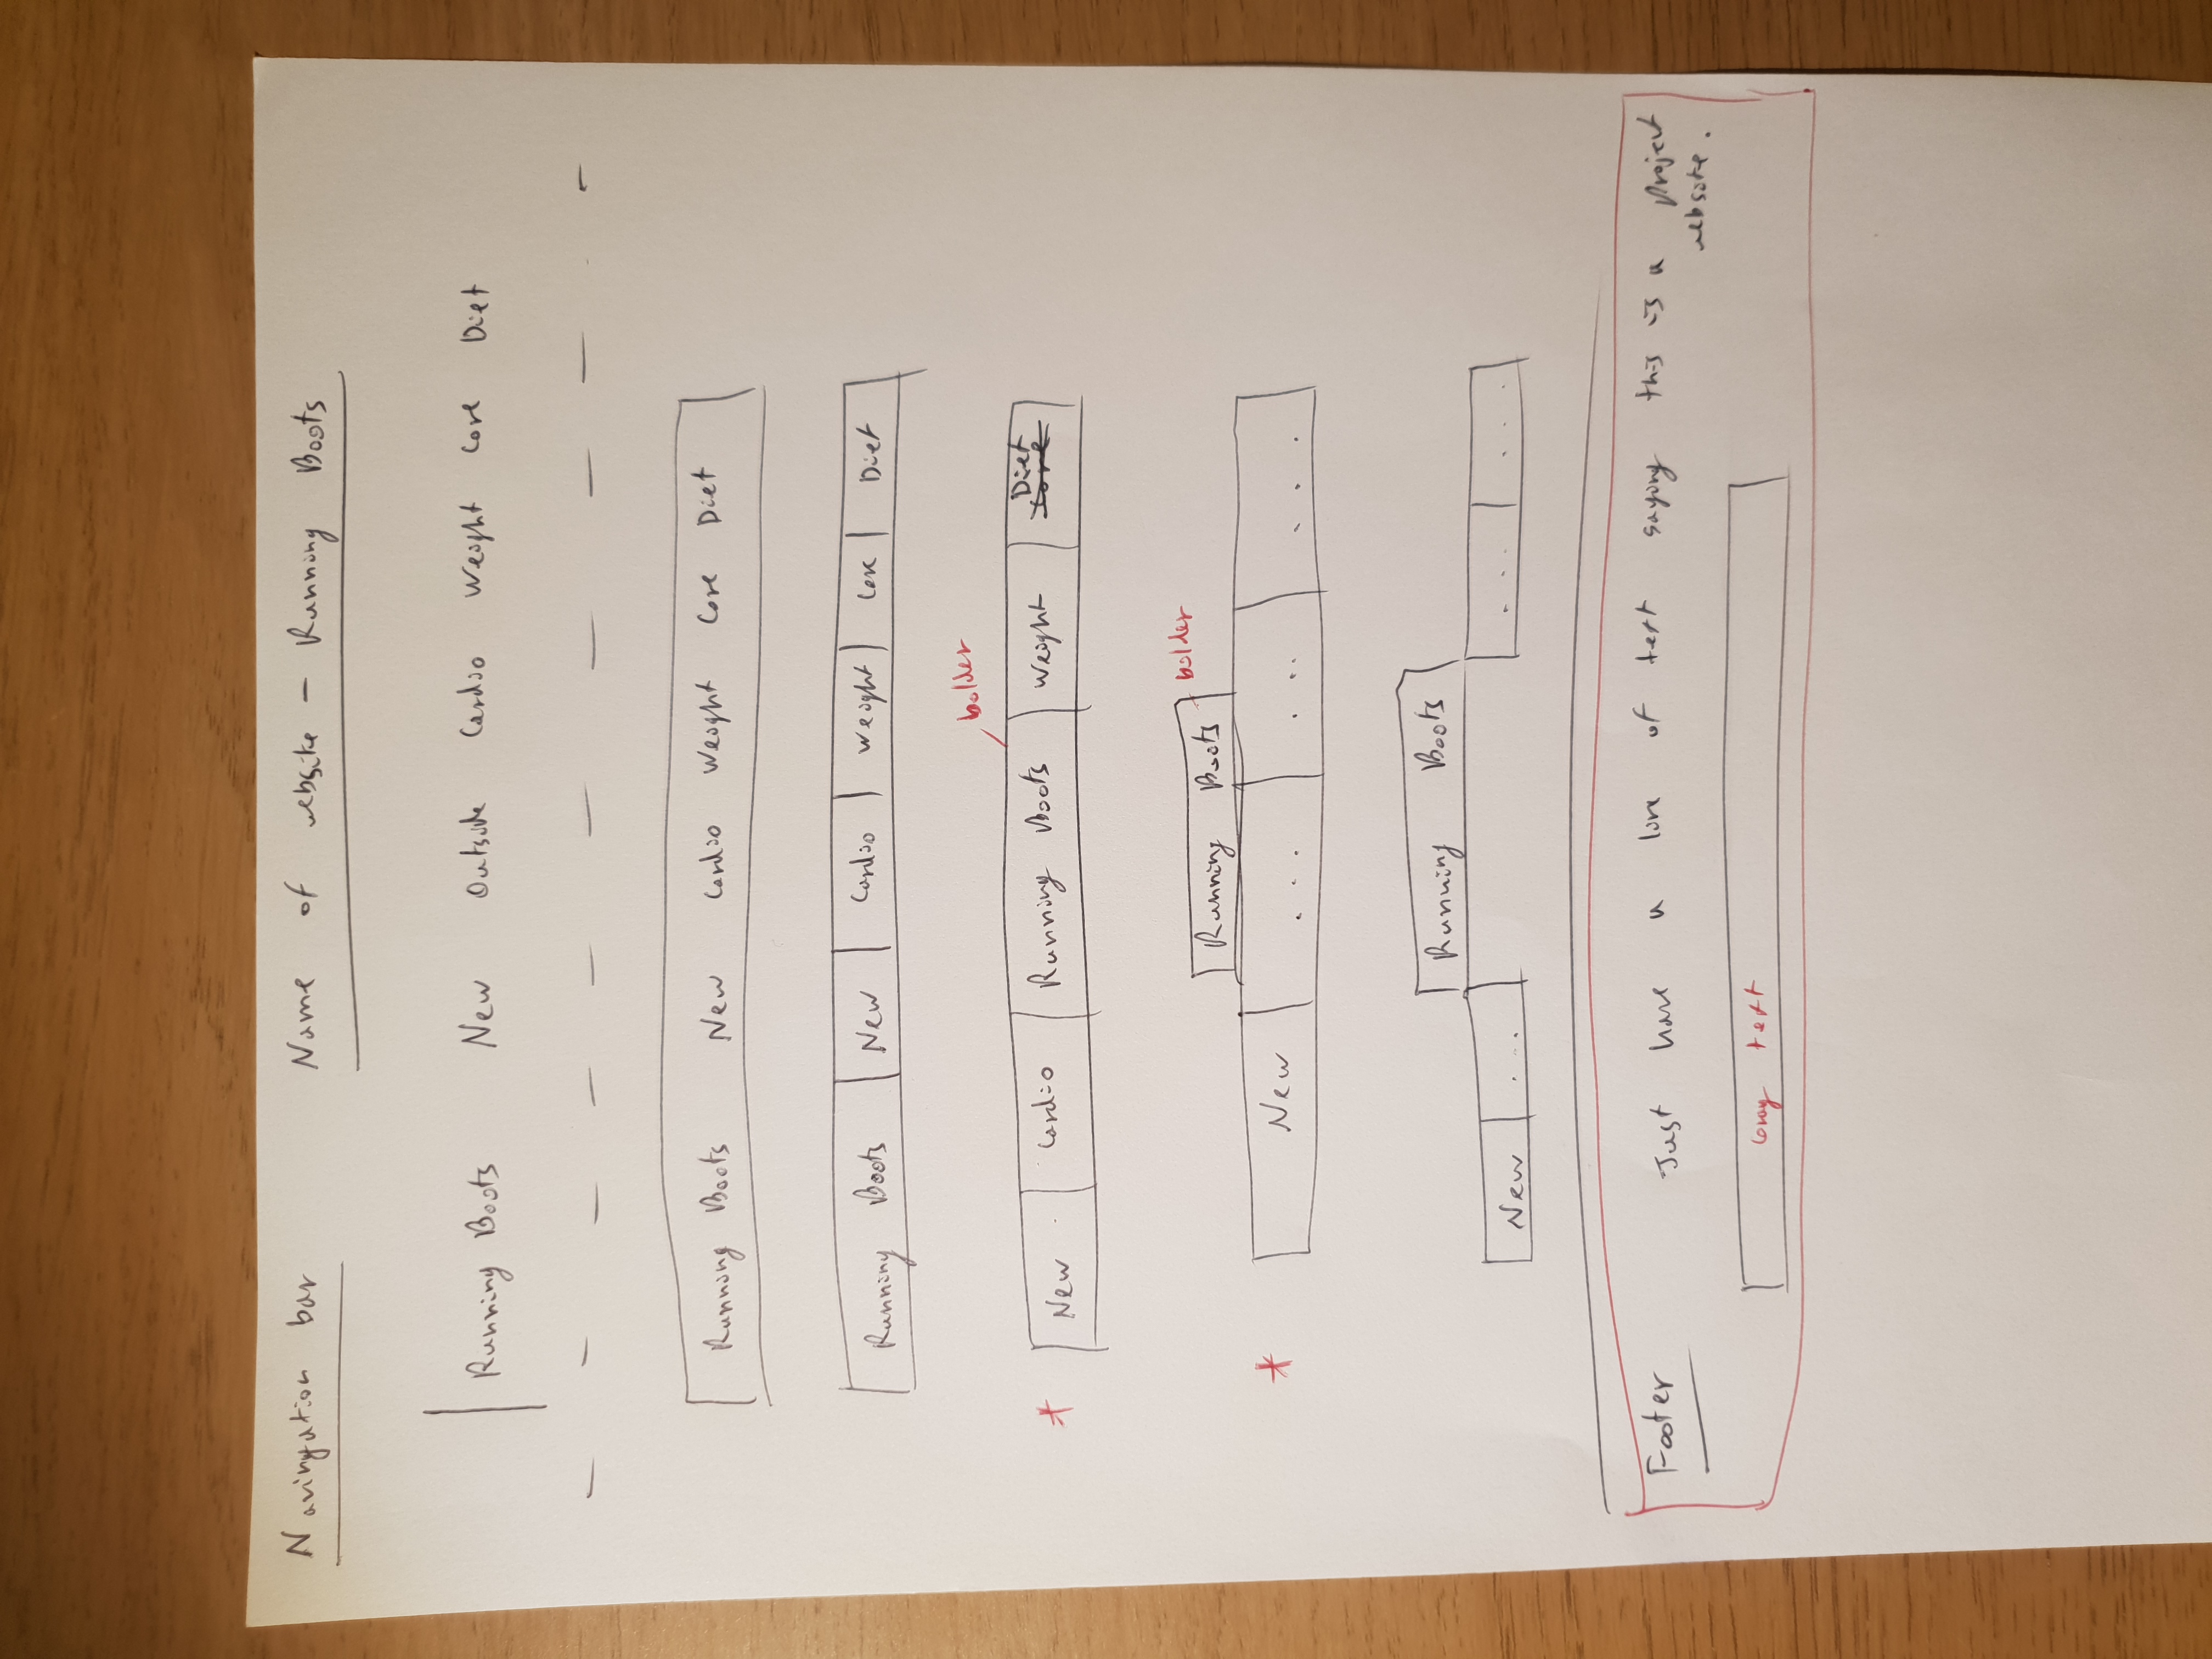 Navingation bar
Name of website - Running Boots
Running Boots New Outside Cardio Weight Core Diet
Running Boots New Cardio Weight Core Diet
Running Boots New Cardio Weight Core Diet
bolder
* New Cardio Running Boots Weight Diet Core
Running Boots bolder
* New ... ... ...
Running Boots
New ... ... ...
Footer Just have a line of text saying this is a project
website.
Gray text